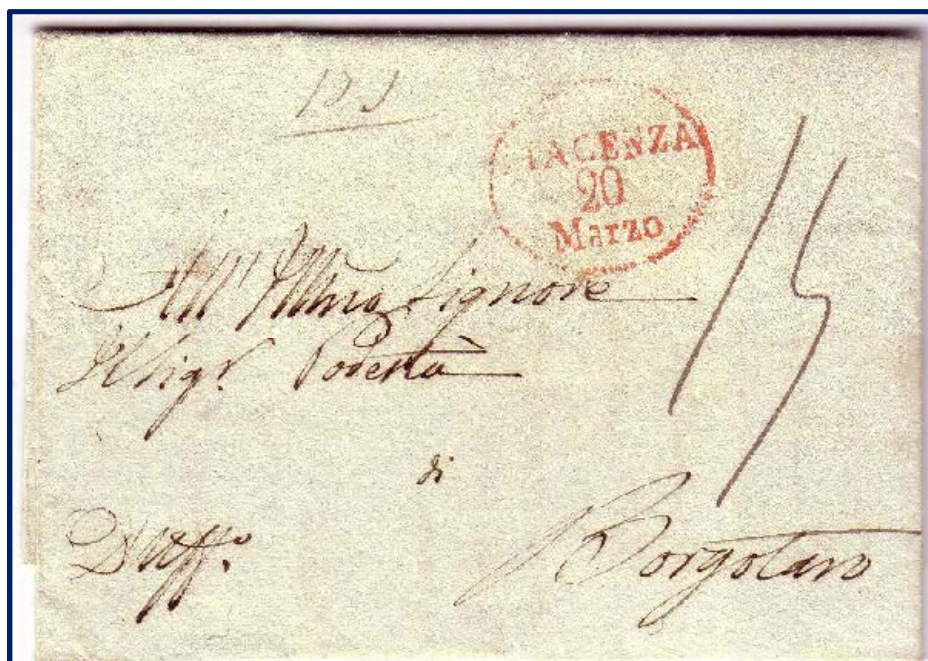 PIACENZA
20
Marzo
15
All' Illmo Signore
Il Sigr. Podestà
di
D'Uff.o Borgotaro